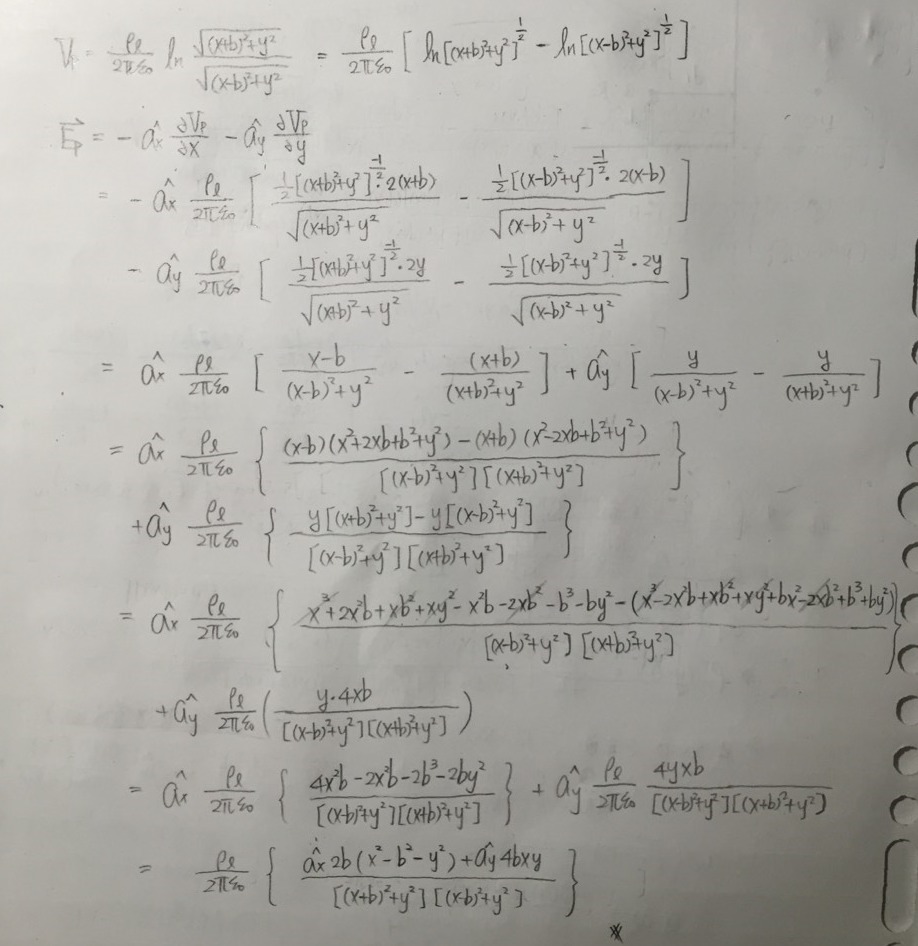 V_P = \frac{ρ_ℓ}{2πε_0} ln \frac{\sqrt{(x+b)^2+y^2}}{\sqrt{(x-b)^2+y^2}} = \frac{ρ_ℓ}{2πε_0} [ ln[(x+b)^2+y^2]^{\frac{1}{2}} - ln[(x-b)^2+y^2]^{\frac{1}{2}} ]
\vec{E_P} = - \hat{a_x} \frac{∂V_P}{∂x} - \hat{a_y} \frac{∂V_P}{∂y}
= - \hat{a_x} \frac{ρ_ℓ}{2πε_0} [ \frac{\frac{1}{2}[(x+b)^2+y^2]^{\frac{-1}{2}}·2(x+b)}{\sqrt{(x+b)^2+y^2}} - \frac{\frac{1}{2}[(x-b)^2+y^2]^{\frac{-1}{2}}·2(x-b)}{\sqrt{(x-b)^2+y^2}} ]
- \hat{a_y} \frac{ρ_ℓ}{2πε_0} [ \frac{\frac{1}{2}[(x+b)^2+y^2]^{\frac{-1}{2}}·2y}{\sqrt{(x+b)^2+y^2}} - \frac{\frac{1}{2}[(x-b)^2+y^2]^{\frac{-1}{2}}·2y}{\sqrt{(x-b)^2+y^2}} ]
= \hat{a_x} \frac{ρ_ℓ}{2πε_0} [ \frac{x-b}{(x-b)^2+y^2} - \frac{(x+b)}{(x+b)^2+y^2} ] + \hat{a_y} [ \frac{y}{(x-b)^2+y^2} - \frac{y}{(x+b)^2+y^2} ]
= \hat{a_x} \frac{ρ_ℓ}{2πε_0} { \frac{(x-b)(x^2+2xb+b^2+y^2)-(x+b)(x^2-2xb+b^2+y^2)}{[(x-b)^2+y^2][(x+b)^2+y^2]} }
+ \hat{a_y} \frac{ρ_ℓ}{2πε_0} { \frac{y[(x+b)^2+y^2]-y[(x-b)^2+y^2]}{[(x-b)^2+y^2][(x+b)^2+y^2]} }
= \hat{a_x} \frac{ρ_ℓ}{2πε_0} { \frac{x^3+2x^2b+xb^2+xy^2-x^2b-2xb^2-b^3-by^2-(x^3-2x^2b+xb^2+xy^2+bx^2-2xb^2+b^3+by^2)}{[(x-b)^2+y^2][(x+b)^2+y^2]} }
+ \hat{a_y} \frac{ρ_ℓ}{2πε_0} ( \frac{y·4xb}{[(x-b)^2+y^2][(x+b)^2+y^2]} )
= \hat{a_x} \frac{ρ_ℓ}{2πε_0} { \frac{4x^2b-2x^2b-2b^3-2by^2}{[(x-b)^2+y^2][(x+b)^2+y^2]} } + \hat{a_y} \frac{ρ_ℓ}{2πε_0} \frac{4yxb}{[(x-b)^2+y^2][(x+b)^2+y^2]}
= \frac{ρ_ℓ}{2πε_0} { \frac{\hat{a_x}2b(x^2-b^2-y^2)+\hat{a_y}4bxy}{[(x+b)^2+y^2][(x-b)^2+y^2]} }